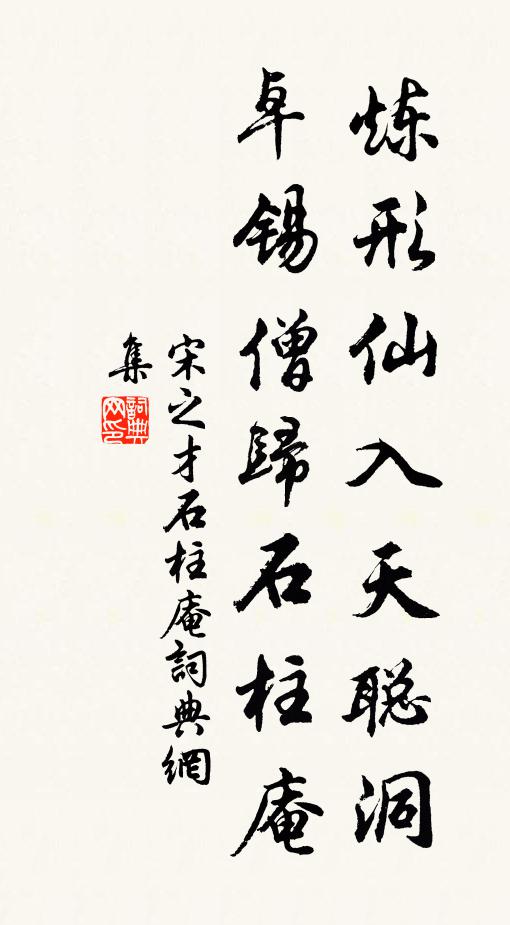 炼形仙入天聪洞
卓锡僧歸石柱庵
宋之才石柱庵詞典網
集
詞典
网印